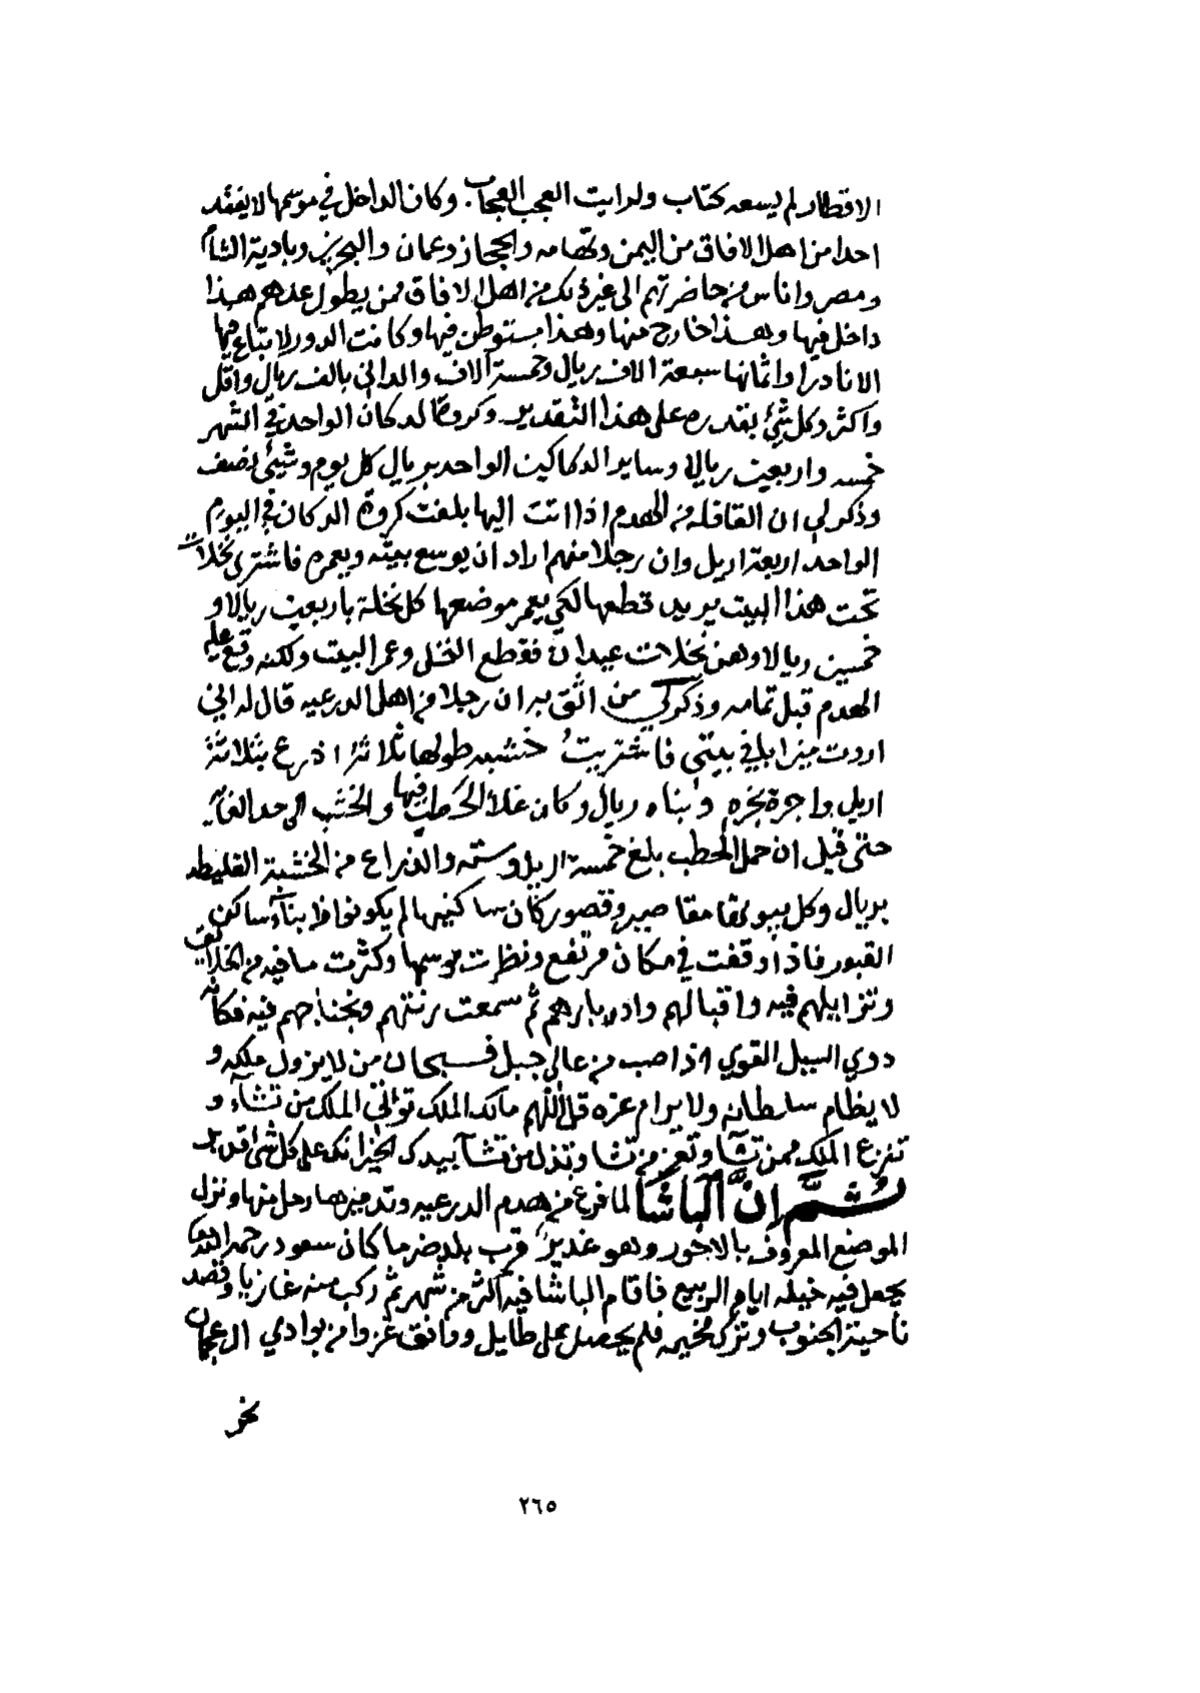 الاقطار لم يسعه كتاب ولرايت العجب العجاب. وكان الداخل في موسمها لا يفقد
احدا من اهل الافاق من اليمن وتهامه والحجاز وعمان والبحرين وبادية الشام
ومصر واناس من حاضرتهم الى غير ذلك من اهل الافاق ممن يطول عدهم هذا
داخل فيها وهذا خارج منها وهذا مستوطن فيها وكانت الدور لا تباع فيها
الا نادرا واثمانها سبعة الاف ريال وخمسة آلاف والداني بالف ريال واقل
واكثر وكل شئ بقدره على هذا التقدير وكروة الدكان الواحد في الشهر
خمسه واربعين ريالا وساير الدكاكين الواحد بريال كل يوم وشيئ نصف
وذكر لي ان القافله من الهدم اذا اتت اليها بلغت كروة الدكان في اليوم
الواحد اربعة اريل وان رجلا منهم اراد ان يوسع بيته ويعمره فاشترى نخلات
تحت هذا البيت يريد قطعها لكي يعمر موضعها كل نخلة باربعين ريالا و
خمسين ريالا وهن نخلات عيدان فقطع النخل وعمر البيت ولكنه وقع عليه
الهدم قبل تمامه وذكر لي من اثق به ان رجلا من اهل الدرعيه قال له اني
اردت ميزابا في بيتي فاشتريت خشبه طولها ثلاثة اذرع بثلاثة
اريل واجرة نجره وبناه ريال وكان غلا الحطب فيها والخشب الى حد الغايه
حتى قيل ان حمل الحطب بلغ خمسة اريل وسته والذراع من الخشبة الغليظه
بريال وكل بيوتها مقاصير وقصور كأن ساكنيها لم يكونوا ابناء ساكن
القبور فاذا وقفت في مكان مرتفع ونظرت موسمها وكثرت ما فيه من الخلايق
وتزايلهم فيه واقبالهم وادبارهم ثم سمعت رنتهم ونجناجهم فيه فكانه
دوي السيل القوي اذا صب من عالي جبل فسبحان من لا يزول ملكه و
لا يضام سلطانه ولا يرام عزه قل اللهم مالك الملك تؤتي الملك من تشآء و
تنزع الملك ممن تشآ وتعز من تشا وتذل من تشآ بيدك الخير انك على كل شئ قدير
ثُمَّ إنَّ الباشا لما فرغ من هدم الدرعيه وتدميرها رحل منها ونزل
الموضع المعروف بالاجور وهو غدير قرب بلد ضرما كان سعود رحمه الله تعا
يجعل فيه خيله ايام الربيع فاقام الباشا فيه اكثر من شهر ثم ركب منه غازيا وقصد
ناحية الجنوب وترك مخيمه فلم يحصل على طايل ووافق غزوا من بوادي ال عجمان
نحر
٢٦٥